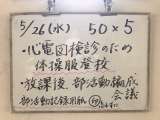 5/26(水) 50×5
・心電図検診のため
体操服登校
・放課後、部活動編成
会議
部活動記録用紙